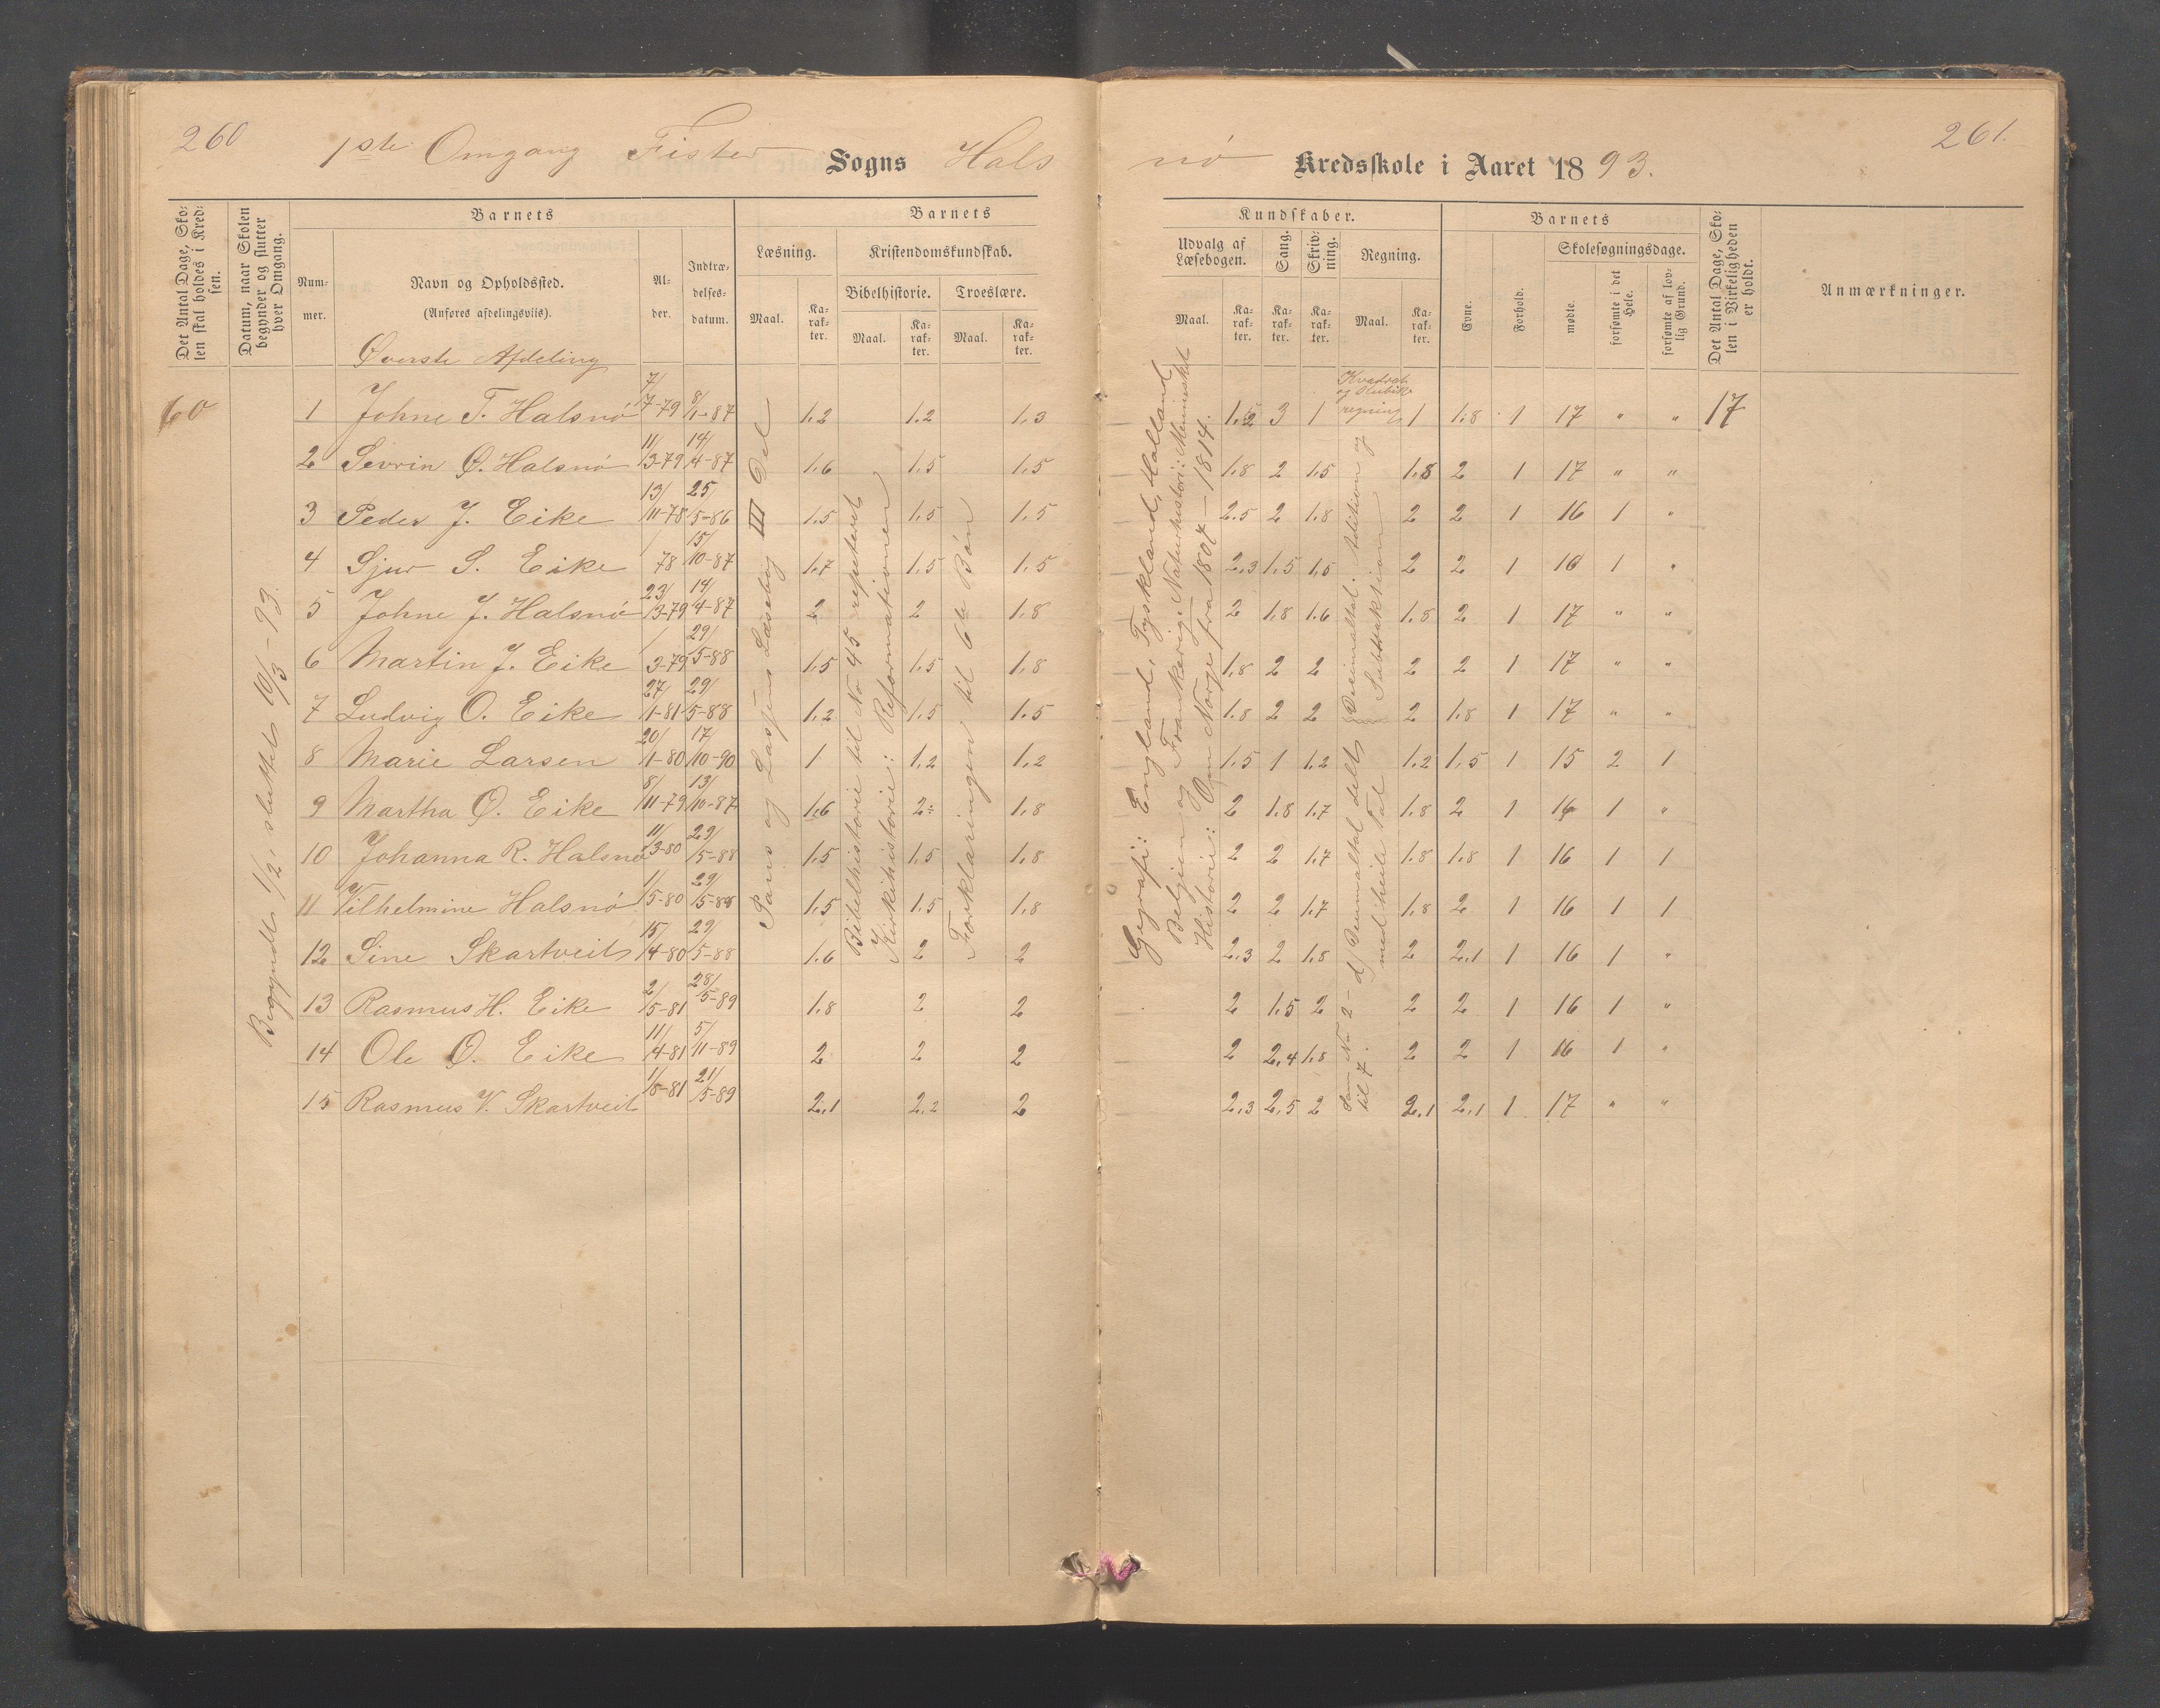 260
1ste Omgang Fister Sogns Hals
nø Kredsskole i Aaret 1893.
261.
Det Antal Dage, Sko-
len skal holdes i Kred-
sen.
Datum, naar Skolen
begynder og slutter
hver Omgang.
Barnets
Num-
mer.
Navn og Opholdssted.
(Anføres afdelingsviis).
Al-
der.
Indtræ-
delses-
datum.
Barnets
Læsning.
Maal.
Ka-
rak-
ter.
Kristendomskundskab.
Bibelhistorie.
Troeslære.
Maal.
Ka-
rak-
ter.
Maal.
Ka-
rak-
ter.
Kundskaber.
Udvalg af
Læsebogen.
Maal.
Ka-
rak-
ter.
Sang.
Ka-
rak-
ter.
Skriv-
ning.
Ka-
rak-
ter.
Regning.
Maal.
Ka-
rak-
ter.
Barnets
Evne.
Forhold.
Skolesøgningsdage.
mødte.
forsømte i det
Hele.
forsømte af lov-
lig Grund.
Det Antal Dage, Sko-
len i Virkeligheden
er holdt.
Anmærkninger.
Øverste Afdeling
60
Begyndt 1/2, sluttet 10/3 - 93.
Pauss og Lassens Læsebog III Del
Bibelhistorie til No 45 repeteret
Kirkehistorie: Reformationen
Forklaringen til 6te Bøn
Gegrafi: England, Tyskland, Holland,
Belgien og Frankerig. Naturhistori: Mennesket
Historie: Om Norge fra 1807 - 1814.
Kvadrat
og Kubik
regning
Decimaltal. Addition og
Subtraktion
d/ Decimaltal delt
med heile Tal
Som No 2 -
til 7.
1 Johne T. Halsnø 7/7-79 8/1-87 1.2 1.2 1.3 1.2 3 1 1 1.8 1 17 " " 17
2 Sevrin Ø. Halsnø 11/3-79 14/4-87 1.6 1.5 1.5 1.8 2 1.5 1.8 2 1 17 " "
3 Peder J. Eike 13/11-78 25/5-86 1.5 1.5 1.5 2.5 2 1.8 2 2 1 16 1 "
4 Sjur S. Eike 78 15/10-87 1.7 1.5 1.5 2.3 1.5 1.5 2 2 1 16 1 "
5 Johne J. Halsnø 23/3-79 14/4-87 2 2 1.8 2 1.8 1.6 1.5 2 1 17 " "
6 Martin J. Eike 3-79 29/5-88 1.5 1.5 1.8 1.8 2 2 2 2 1 17 " "
7 Ludvig O. Eike 27/1-81 29/5-88 1.2 1.5 1.5 1.8 2 2 2 1.8 1 17 " "
8 Marie Larsen 20/1-80 17/10-90 1 1.2 1.2 1.5 1 1.2 1.2 1.5 1 15 2 1
9 Martha Ø. Eike 8/11-79 13/10-87 1.6 2 1.8 2 1.8 1.7 1.8 2 1 16 1 "
10 Johanna R. Halsnø 11/3-80 29/5-88 1.5 1.5 1.8 2 2 1.7 1.8 1.8 1 16 1 1
11 Vilhelmine Halsnø 1/5-80 29/5-88 1.5 1.5 1.8 2 2 1.7 1.8 2 1 16 1 1
12 Sine Skartveit 15/4-80 29/5-88 1.6 2 2 2.3 2 1.8 2 2.1 1 16 1 "
13 Rasmus H. Eike 2/5-81 28/5-89 1.8 2 2 2 1.5 2 2 2 1 16 1 "
14 Ole Ø. Eike 11/4-81 5/11-89 2 2 2 2 2.4 1.8 2 2 1 16 1 "
15 Rasmus V. Skartveit 1/5-81 21/5-89 2.1 2.2 2 2.3 2.5 2 2.1 2.1 1 17 " "